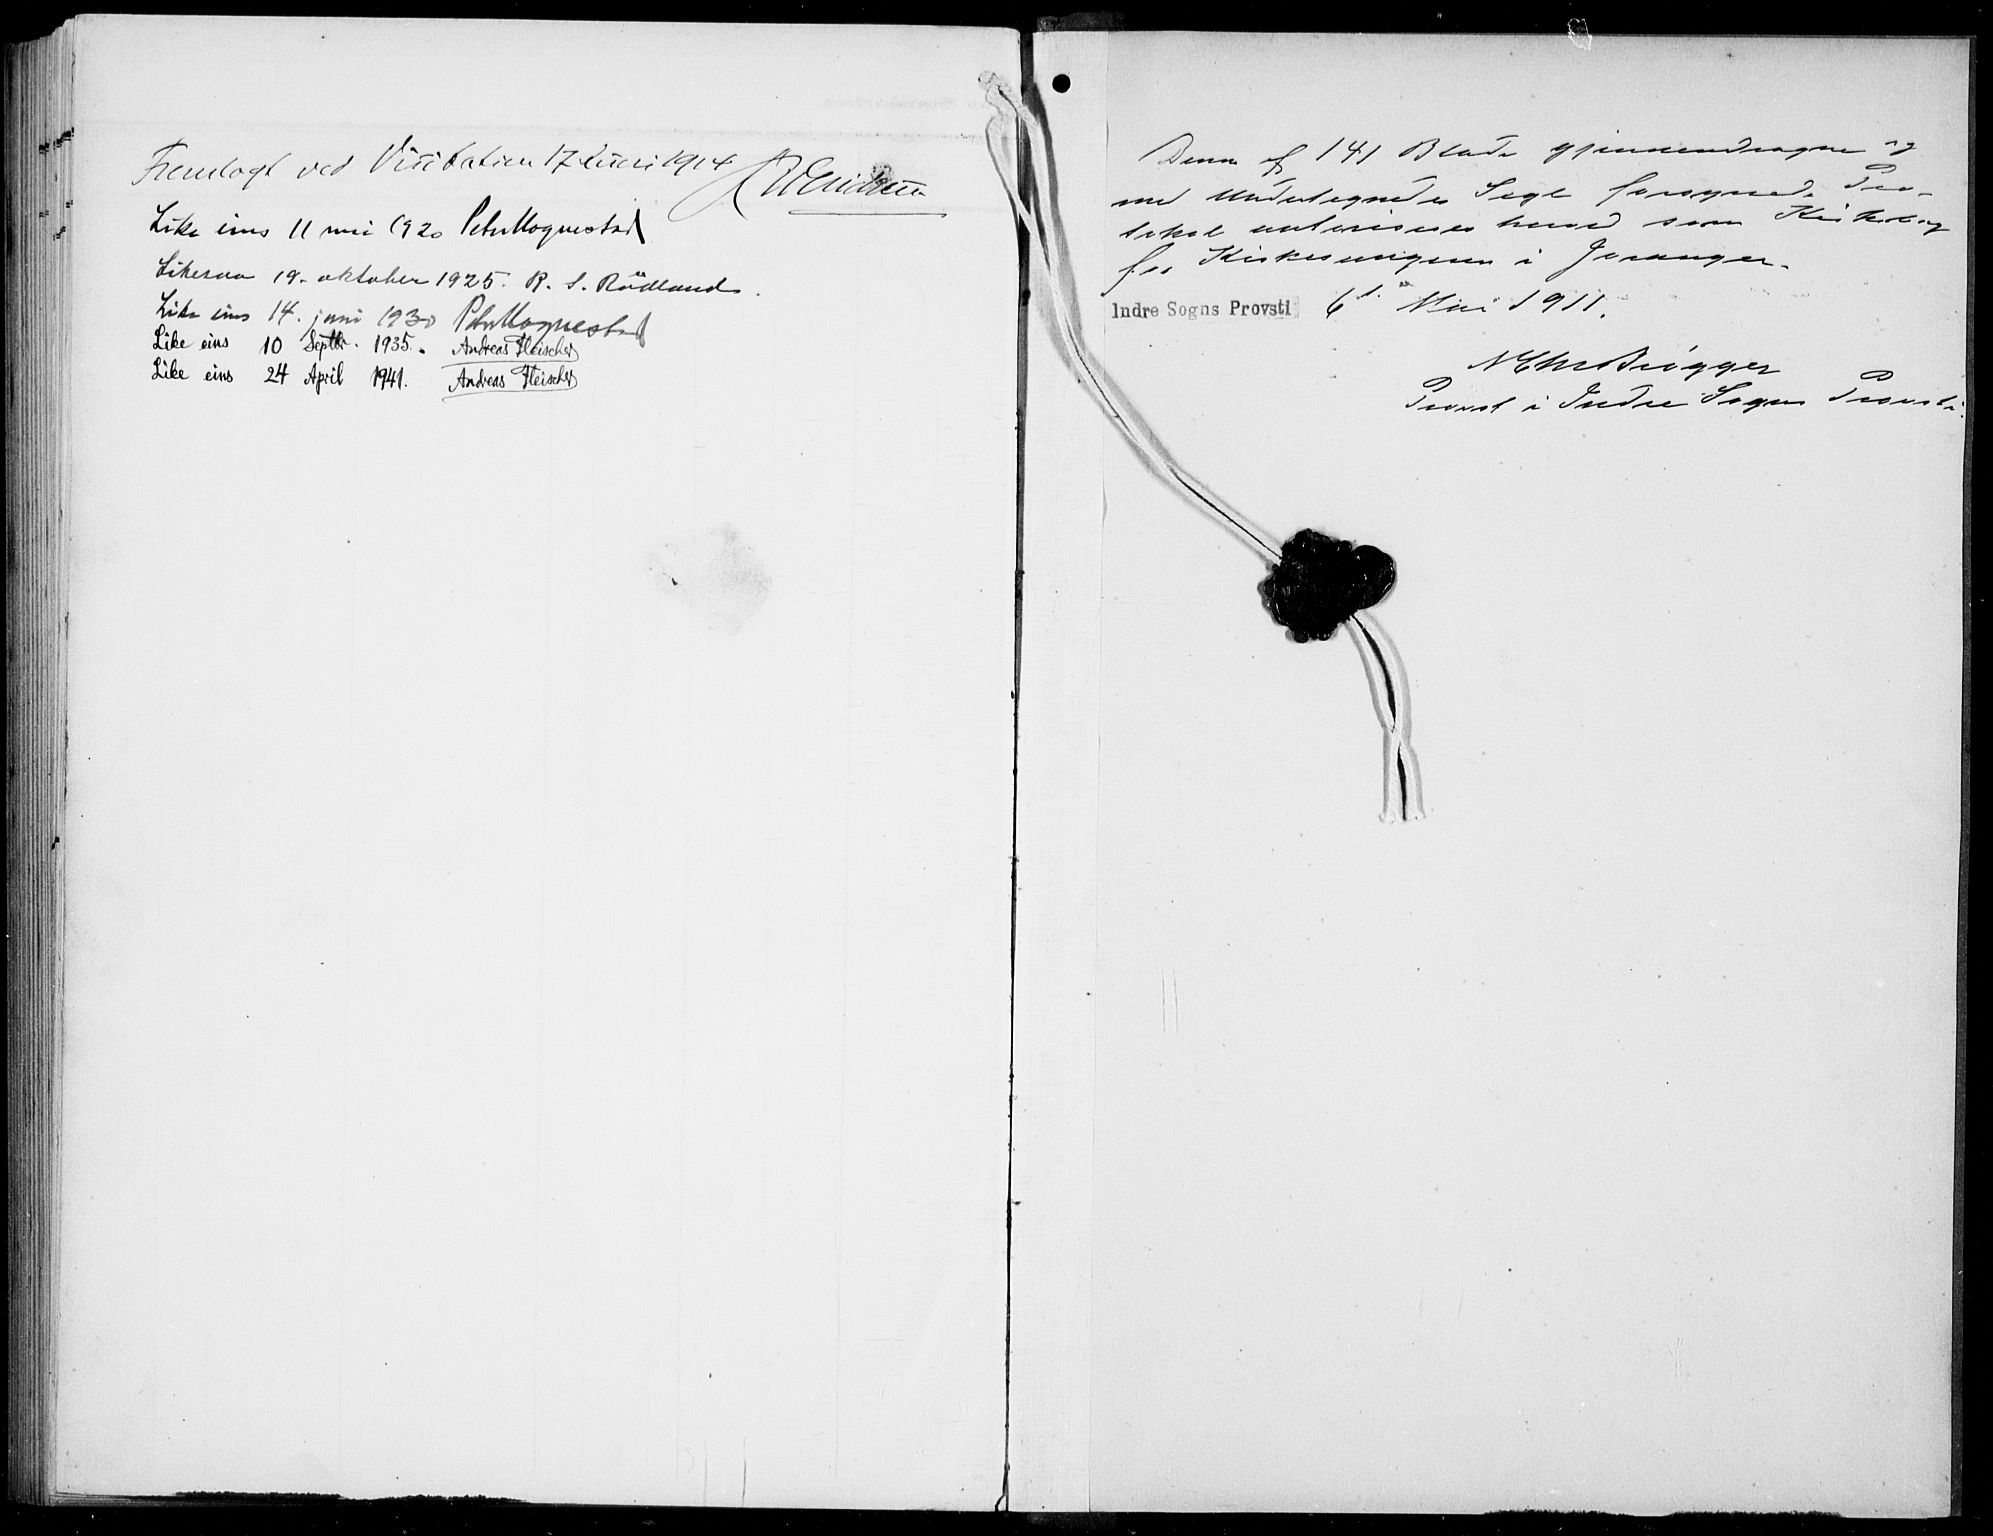 Fremlagt ved Visitation 17 Juni 1914
Like eins 11 mai 1920 Peter Mognestad
Likesaa 19. oktober 1925. R. S. Rödland.
Like eins 14. juni 1930 Peter Mognestad
Like eins 10 Septbr. 1935. Andreas Fleischer
Like eins 24 April 1941. Andreas Fleischer
Denne af 141 Blade gjennemdragne og
med Undertegnedes Segl forsynede Pro-
tokol autoriseres herved som Kirkebog
for Kirkesangeren i Joranger.
Indre Sogns Provsti 6te Mai 1911.
Brøgger
Provst i Indre Sogns Provsti.